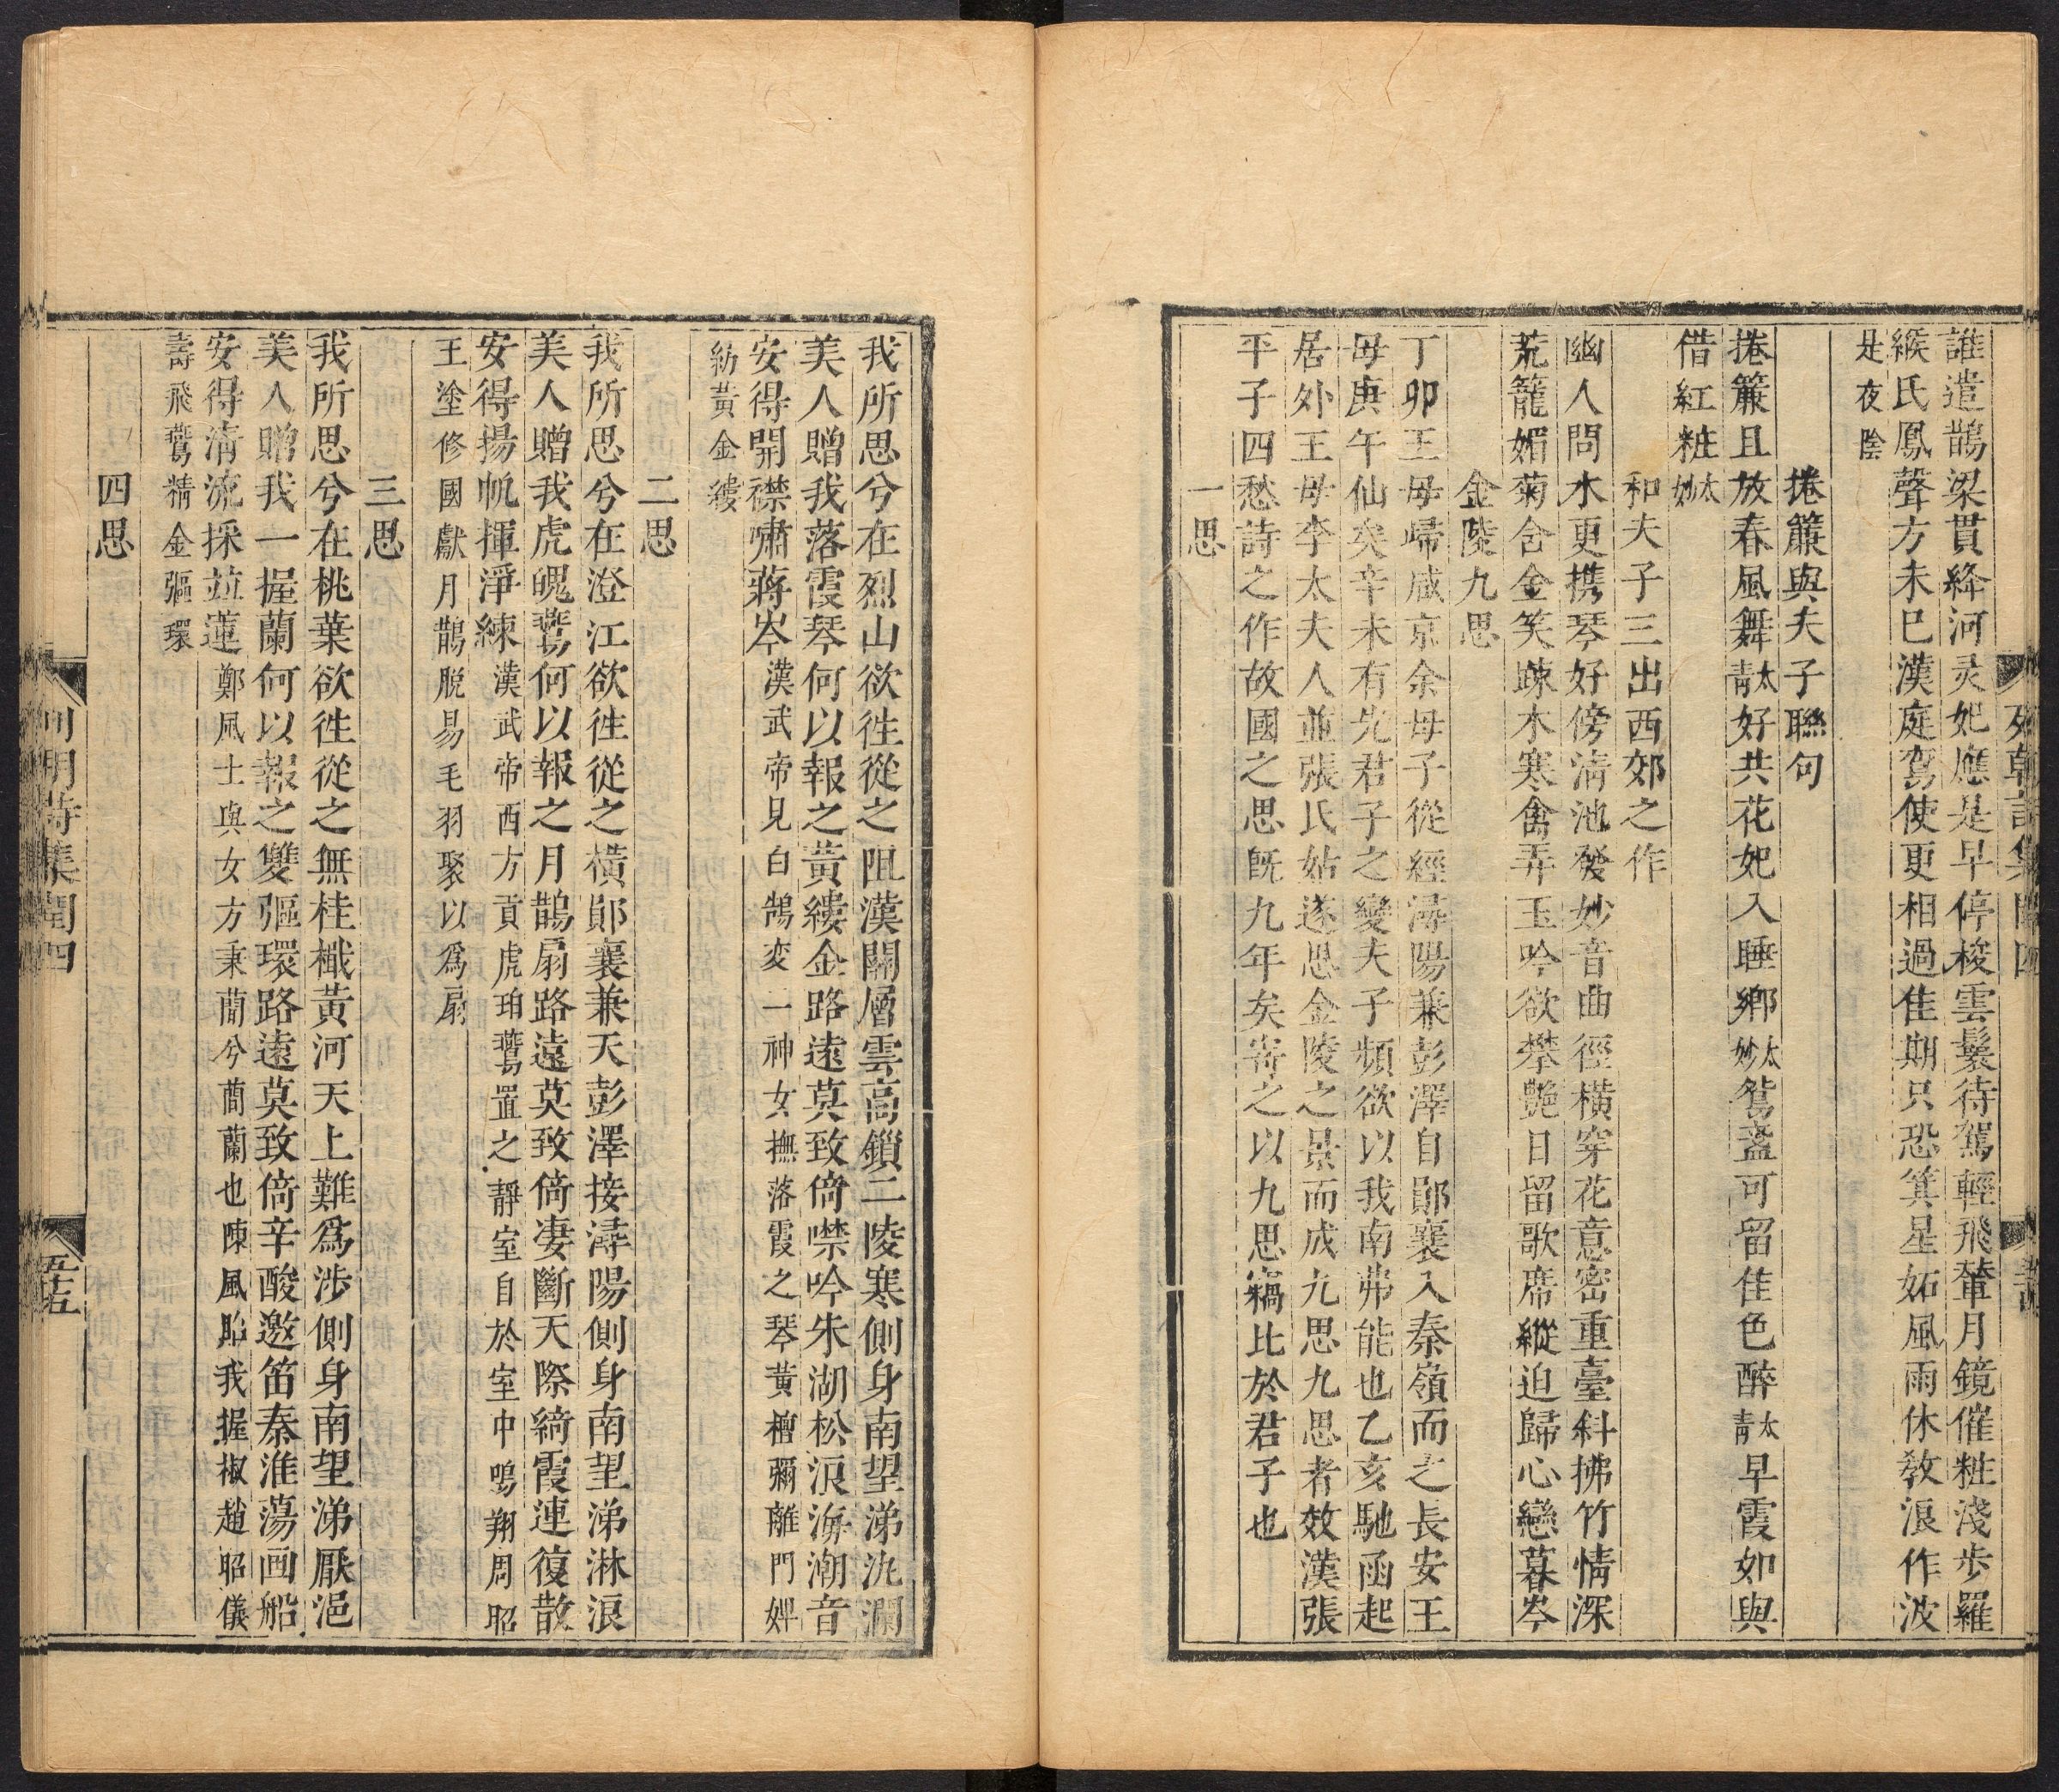 誰遣鵲梁貫絳河灵妃應是早停梭雲鬟待駕輕飛輦月鏡催粧淺步羅
緱氏鳳聲方未巳漢庭鴐使更相過佳期只恐箕星妬風雨休教浪作波
是夜陰
捲簾與夫子聯句
捲簾且放春風舞太青好共花妃入睡鄉太妙鴛盞可留佳色醉太青早霞如與
借紅粧太妙
和夫子三出西郊之作
幽人問水更携琴好傍清池發妙音曲徑橫穿花意密重臺斜拂竹情深
荒籠媚菊含金笑踈木寒禽弄玉吟欲攀艷日留歌席縱迫歸心戀暮岑
金陵九思
丁卯王母歸咸京余母子從經潯陽兼彭澤自鄖襄入秦嶺而之長安王
母庚午仙矣辛未有先君子之變夫子頻欲以我南弗能也乙亥馳函起
居外王母李太夫人並張氏姑遂思金陵之景而成九思九思者效漢張
平子四愁詩之作故國之思旣九年矣寄之以九思稿比於君子也
一思
我所思兮在烈山欲徃從之阻漢關層雲高鎖二陵寒側身南望涕汍瀾
美人贈我落霞琴何以報之黃縷金路遠莫致倚噤吟朱湖松浪海潮音
安得開襟嘯蔣岑漢武帝見白鵠変一神女撫落霞之琴黃檀彌離門婢
紡黃金縷
二思
我所思兮在澄江欲徃從之橫鄖襄兼天彭澤接潯陽側身南望涕淋浪
美人贈我虎魄鷰何以報之月鵲扇路遠莫致倚凄斷天際綺霞連復散
安得揚帆揮淨練漢武帝西方貢虎珀鷰置之靜室自於室中鳴翔周昭
王塗修國獻月鵲脫易毛羽聚以爲扇
三思
我所思兮在桃葉欲徃從之無桂檝黃河天上難爲涉側身南望涕厭浥
美人贈我一握蘭何以報之雙彄環路遠莫致倚辛酸邀笛秦淮蕩画船
安得清流採並蓮鄭風士與女方秉蕳兮蕳蘭也陳風貽我握椒趙昭儀
壽飛鷰精金彄環
四思
列朝詩集閏四
五十五